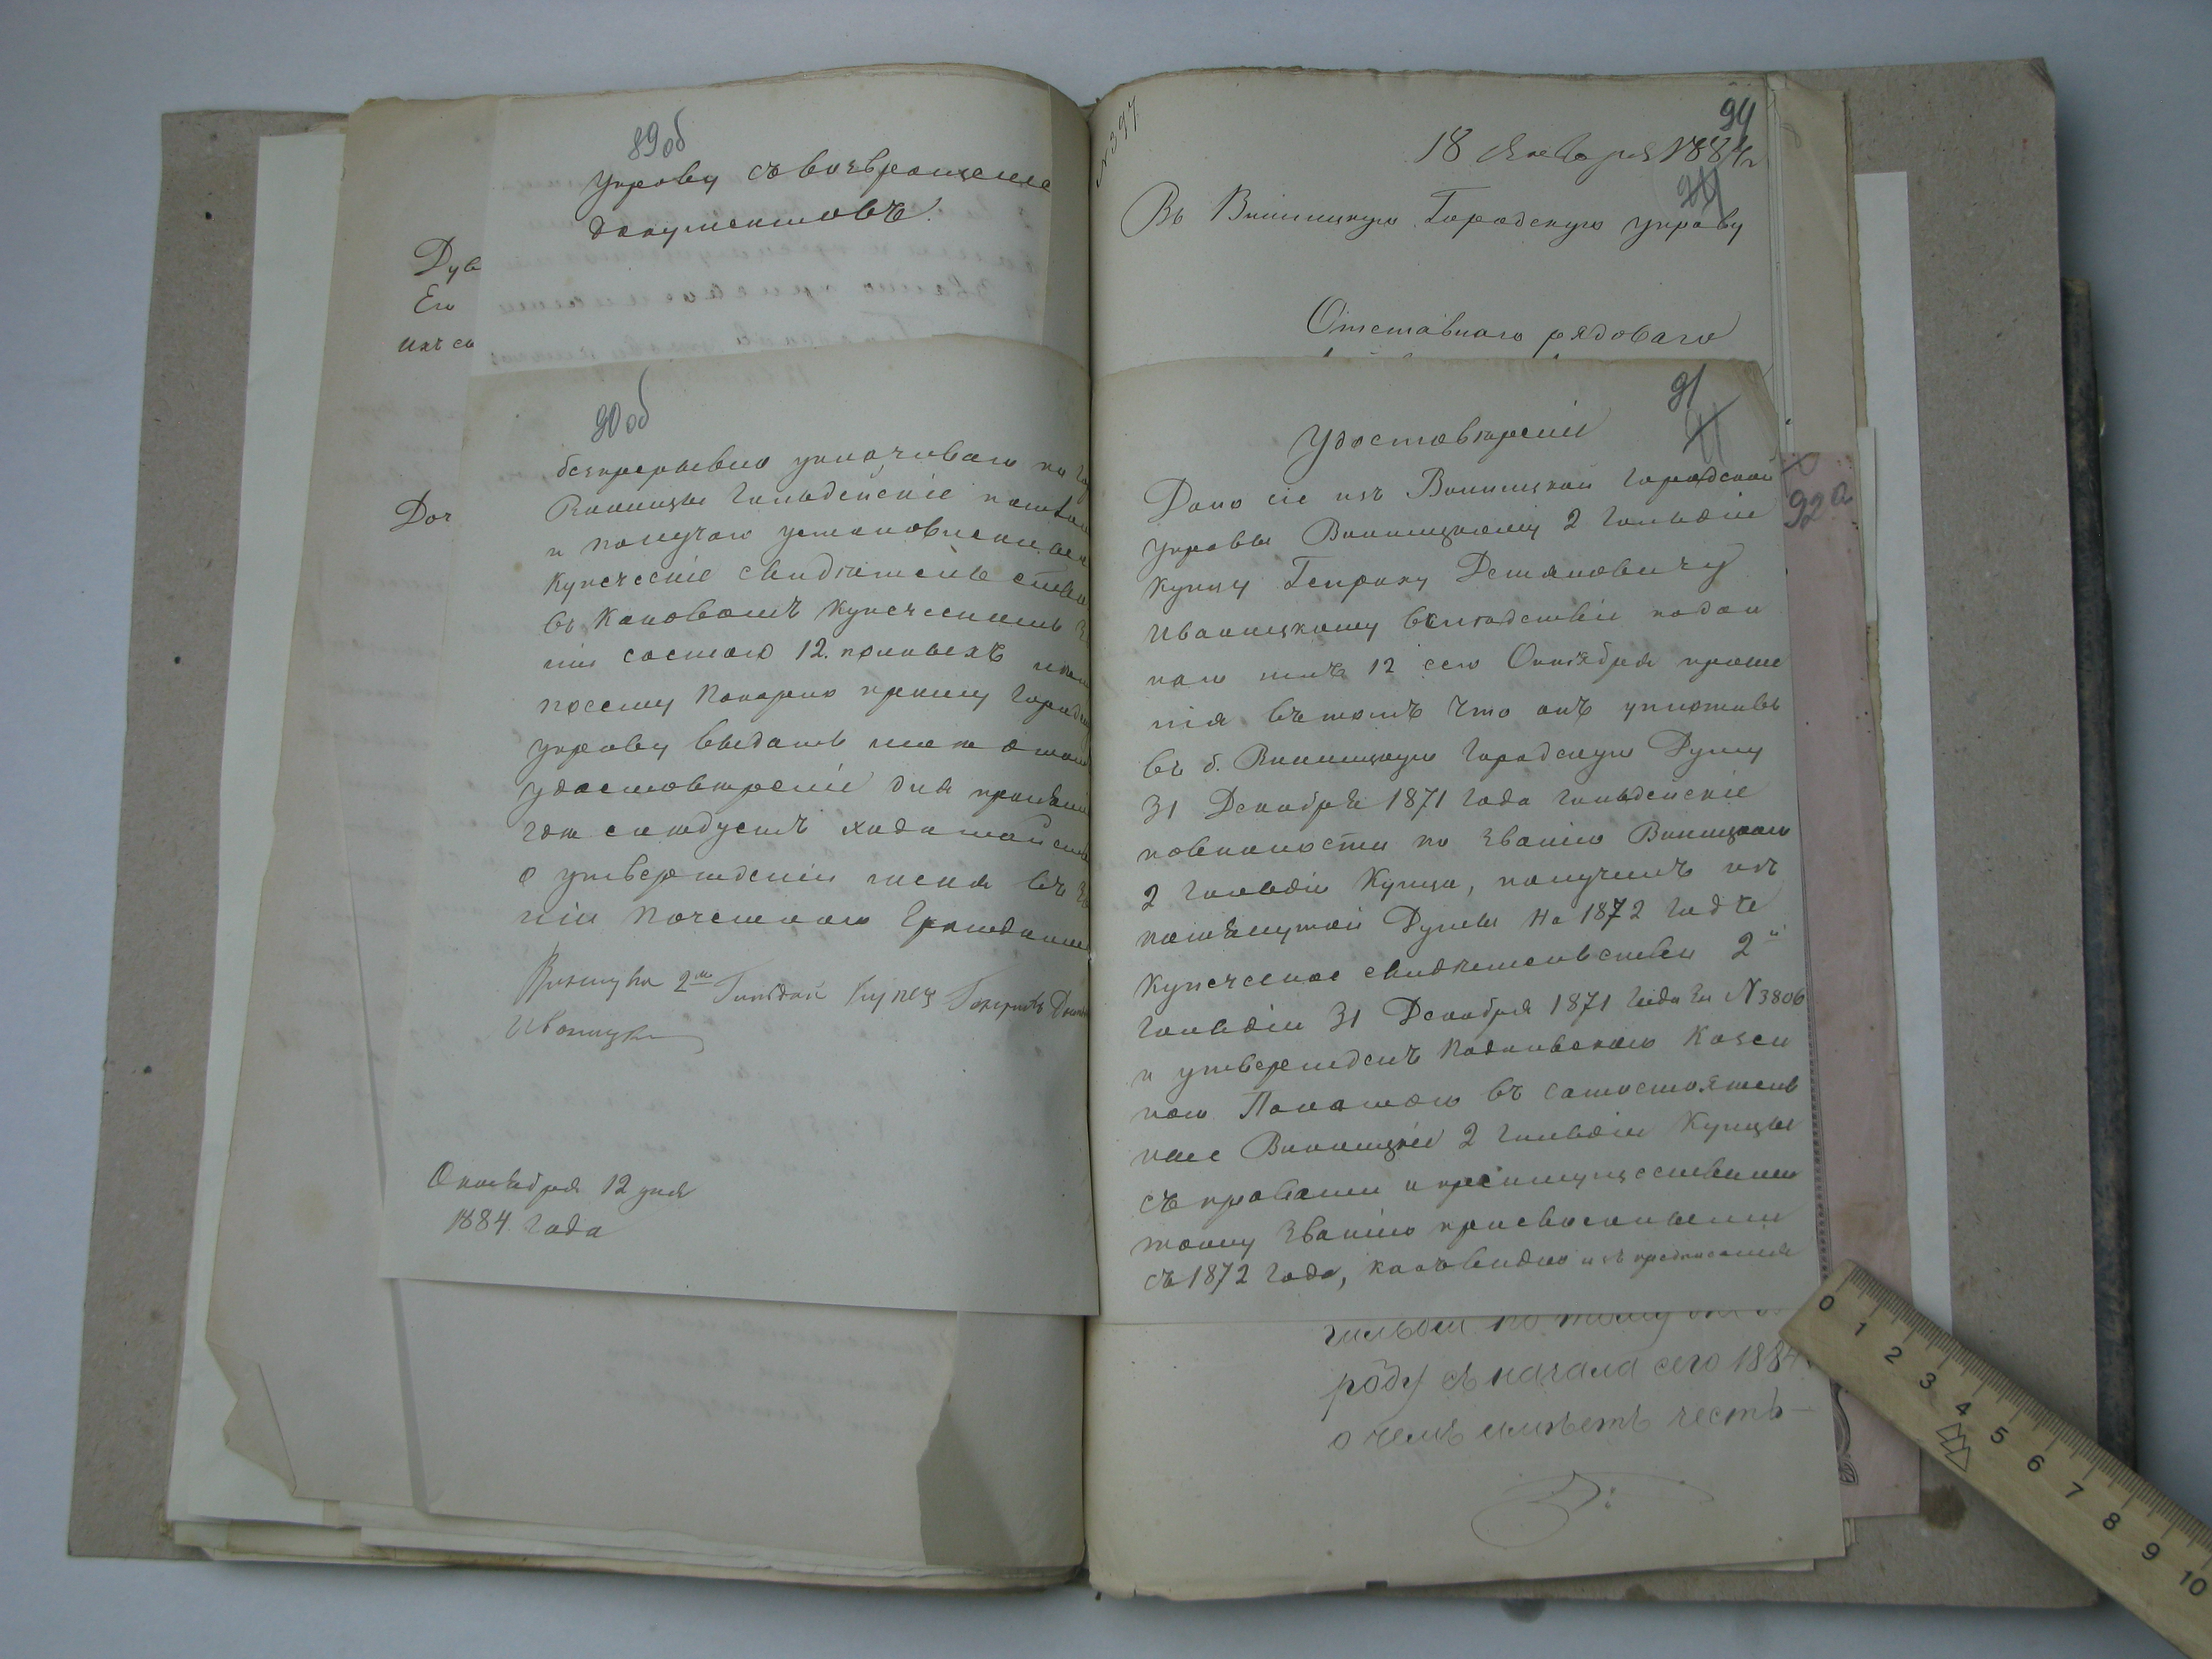 89 об
Управу съ возвращение
документовъ.
Дув
Его
Доч
90 об
безпрерывно уплачиваю по
Винницы гильдейскіе
и получаю установленные
купеческіе свидѣтельства
въ каковомъ купеческомъ
ніи состою 12. полныхъ
посему покорно прошу Город
управу выдать мне о томъ
удостовѣреніе для
гдѣ слѣдуетъ ходатайств
о утвержденіи меня въ
ніи почетнаго Гражданина
2ой Гильдіи Купец
Иваницкі
Октября 12 дня
1884 года
№ 397
94
18 Января 1884 г
Въ Винницкую Городскую управу
Отставного рядового
91
Удостовѣреніе
Дано сіе изъ Винницкой городской
управы Винницкому 2 гильдіи
купцу Генриху Демяновичу
Иваницкому вслѣдствіе подан
наго имъ 12 сего Октября проше
нія въ томъ что онъ уплативъ
въ б. Винницкую Городскую Думу
31 Декабря 1871 года гильдейскіе
повинности по званію Винницкаго
2 гильдіи Купца, получилъ изъ
помянутой Думы на 1872 годъ
купеческое свидѣтельство 2й
гильдіи 31 Декабря 1871 года за № 3806
и утвержденъ Подольскою Казен
ною Палатою въ самостоятель
ные Винницкіе 2 гильдіи Купцы
съ правами и преимуществами
тому званію присвоенными
съ 1872 года, какъ видно изъ предписанія
92а
гильдіи по тому
роду съ начала сего 1884
о чемъ имѣетъ честь
0 1 2 3 4 5 6 7 8 9 10